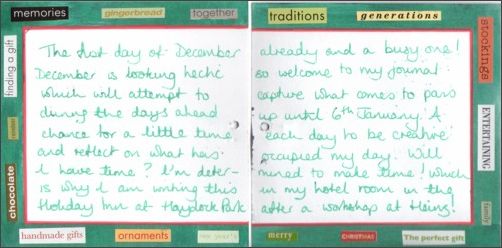 memories
gingerbread
together
traditions
generations
finding a gift
chocolate
The first day of December already and a busy one!
December is looking hectic so welcome to my journal
which will attempt to capture what comes to pass
during the days ahead up until 6th January. A
chance for a little time each day to be creative
and reflect on what has occupied my day. Will
I have time? I'm deter- mined to make time! which
is why I am writing this in my hotel room in the
Holiday Inn at Haydock Park after a workshop at
stockings
ENTERTAINING
family
handmade gifts
ornaments
new year's
merry
CHRISTMAS
The perfect gift